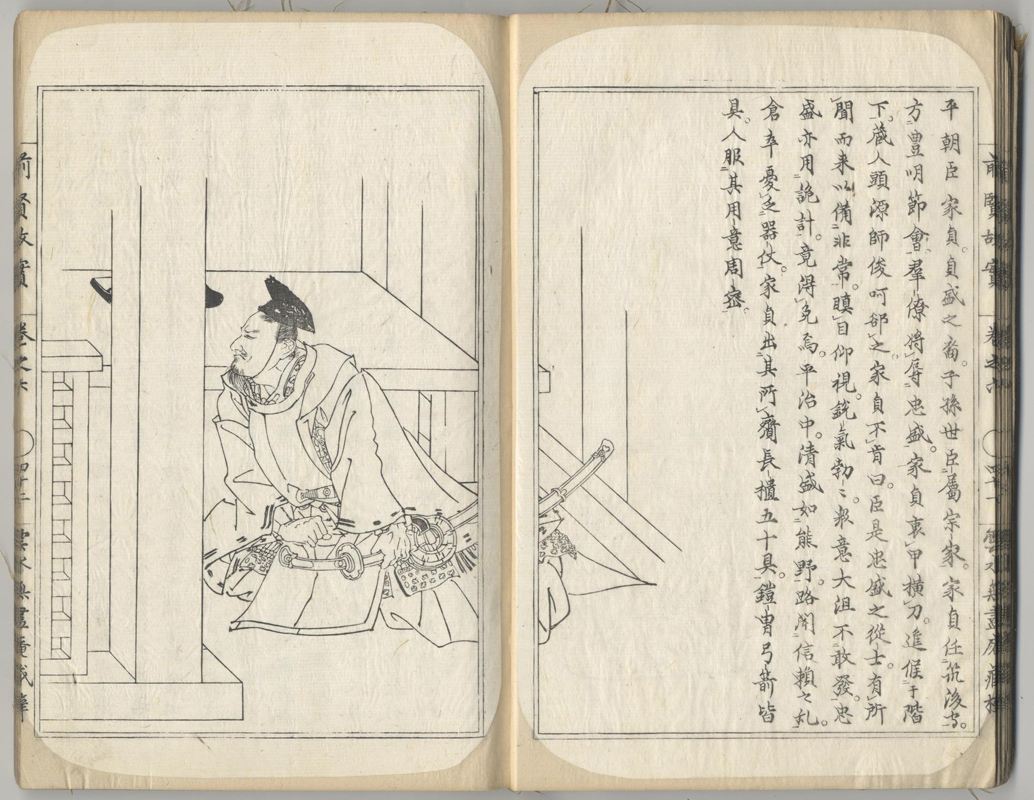 平朝臣家貞。貞盛之裔。子孫世臣屬宗家。家貞任筑後守。
方豊明節會、羣僚將辱忠盛。家貞衷甲横刀。進候于階
下。蔵人頭源師俊呵郤之。家貞不肯曰。臣是忠盛之從士。有所
聞而来以備非常。瞋目仰視。銳氣勃〻。衆意大沮不敢發。忠
盛亦用詭計。竟得免焉。平治中。清盛如熊野。路聞信頼之乱。
倉卒憂乏器仗。家貞出其所齎長櫃五十具。鎧冑弓箭皆
具。人服其用意周密。
前賢故實 卷之六
前賢故實 卷之六 〇四十二